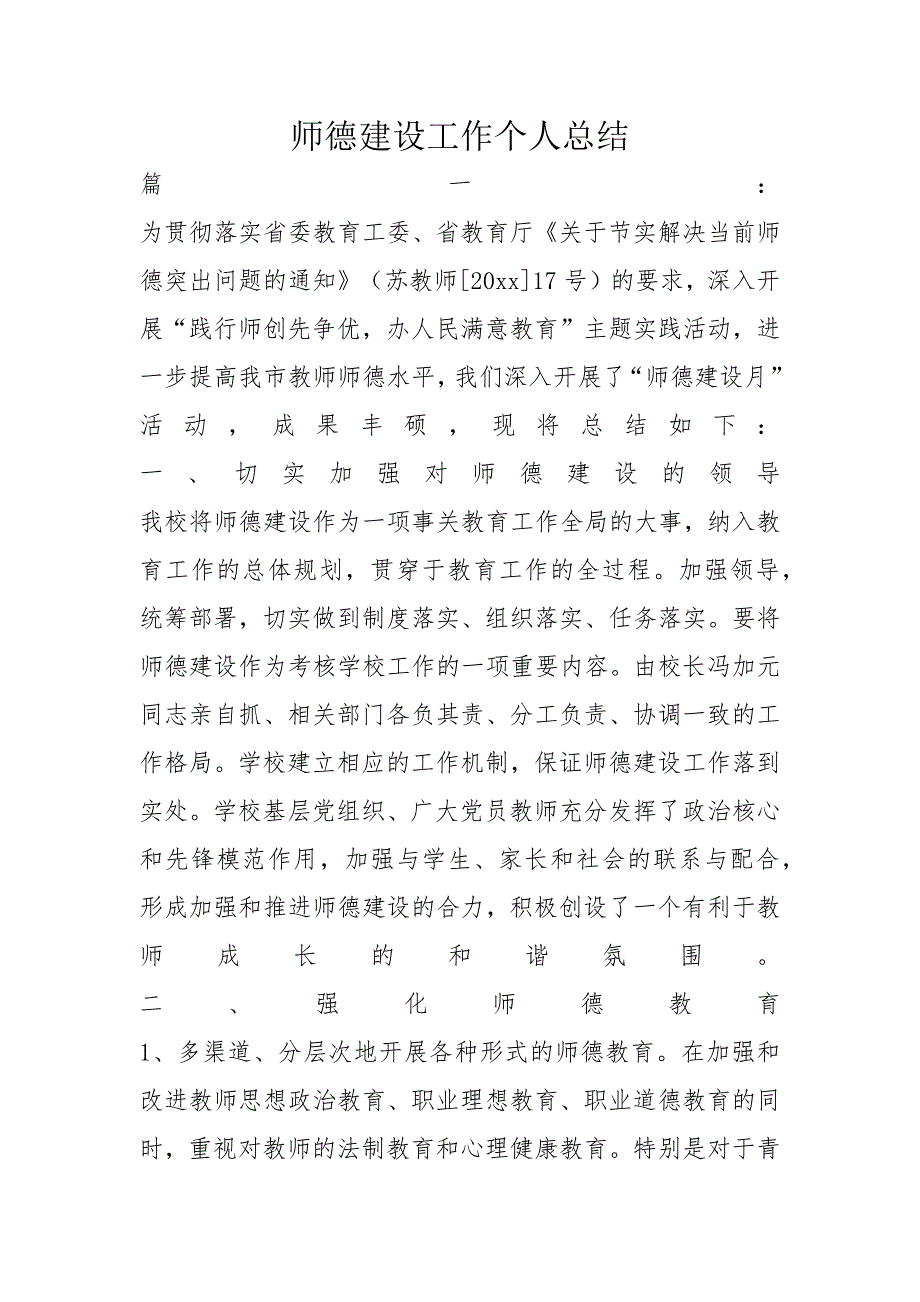 师德建设工作个人总结
篇一：
为贯彻落实省委教育工委、省教育厅《关于节实解决当前师
德突出问题的通知》（苏教师[20xx]17 号）的要求，深入开
展“践行师创先争优，办人民满意教育”主题实践活动，进
一步提高我市教师师德水平，我们深入开展了“师德建设月”
活动，成果丰硕，现将总结如下：
一、切实加强对师德建设的领导
我校将师德建设作为一项事关教育工作全局的大事，纳入教
育工作的总体规划，贯穿于教育工作的全过程。加强领导，
统筹部署，切实做到制度落实、组织落实、任务落实。要将
师德建设作为考核学校工作的一项重要内容。由校长冯加元
同志亲自抓、相关部门各负其责、分工负责、协调一致的工
作格局。学校建立相应的工作机制，保证师德建设工作落到
实处。学校基层党组织、广大党员教师充分发挥了政治核心
和先锋模范作用，加强与学生、家长和社会的联系与配合，
形成加强和推进师德建设的合力，积极创设了一个有利于教
师成长的和谐氛围。
二、强化师德教育
1、多渠道、分层次地开展各种形式的师德教育。在加强和
改进教师思想政治教育、职业理想教育、职业道德教育的同
时，重视对教师的法制教育和心理健康教育。特别是对于青